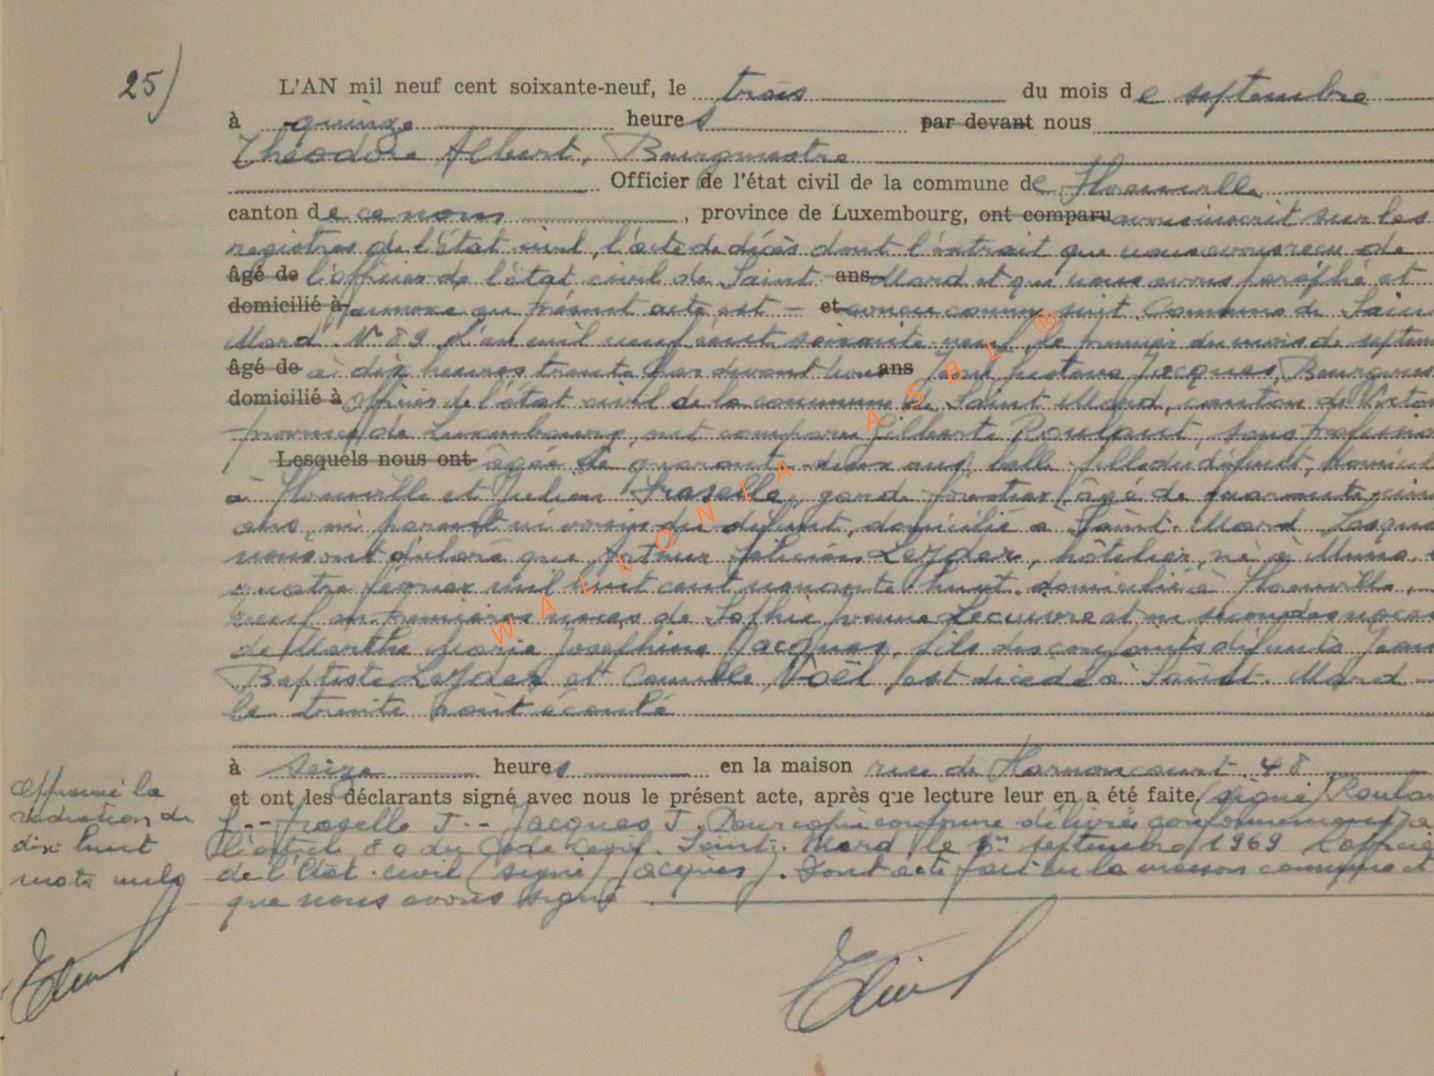 25)
L'AN mil neuf cent soixante-neuf, le trois du mois de septembre
à quinze heures par devant nous
Théodore Albert, Bourgmestre
Officier de l'état civil de la commune de Florenville
canton de ce nom, province de Luxembourg, ont comparu avons inscrit sur les
registres de l'état-civil, l'acte de décès dont l'extrait que nous avons reçu de
âgé de l'officier de l'état civil de Saint ans Mard et que nous avons paraphé et
domicilié à annexé au présent acte est et conçu comme suit. Commune de Sain
Mard. N° 89. L'an mil neuf cent soixante-neuf, le premier du mois de septem
âgé de à dix heures trente par devant nous ans Jacques, Bourgmes
domicilié à Officier de l'état civil de la commune de Saint-Mard, canton de Virton
province de Luxembourg, ont comparu Gilberte Roulant, sans professio
Lesquels nous ont âgée de quarante-deux ans, belle-fille du défunt, domicil
à Florenville et Julien Fraselle, garde-forestier, âgé de quarante-cinq
ans, ni parent ni voisin du défunt, domicilié à Saint-Mard. Lesque
nous ont déclaré que Arthur Félicien Lejder, hôtelier, né à Muno,
quatre février mil huit cent nonante-huit, domicilié à Florenville,
veuf en premières noces de Sophie Jeanne Lecuivre et en secondes noces
de Marthe Marie Joséphine Jacques, fils des conjoints défunts Jean
Baptiste Lejder et Camille Noël, est décédé à Saint-Mard
le trente août écoulé
à seize heures en la maison rue de Harnoncourt 48
et ont les déclarants signé avec nous le présent acte, après que lecture leur en a été faite, (signé) Roulan
Fraselle J. -- Jacques J. Pour copie conforme délivrée conformément à
l'article 80 du Code Civil. Saint-Mard, le 1er septembre 1969 L'officie
de l'Etat-civil (signé) Jacques J. Dont acte fait en la maison communale et
que nous avons signé
Approuvé la
radiation de
dix-huit
mots nuls
WALLONIA ASBL ®